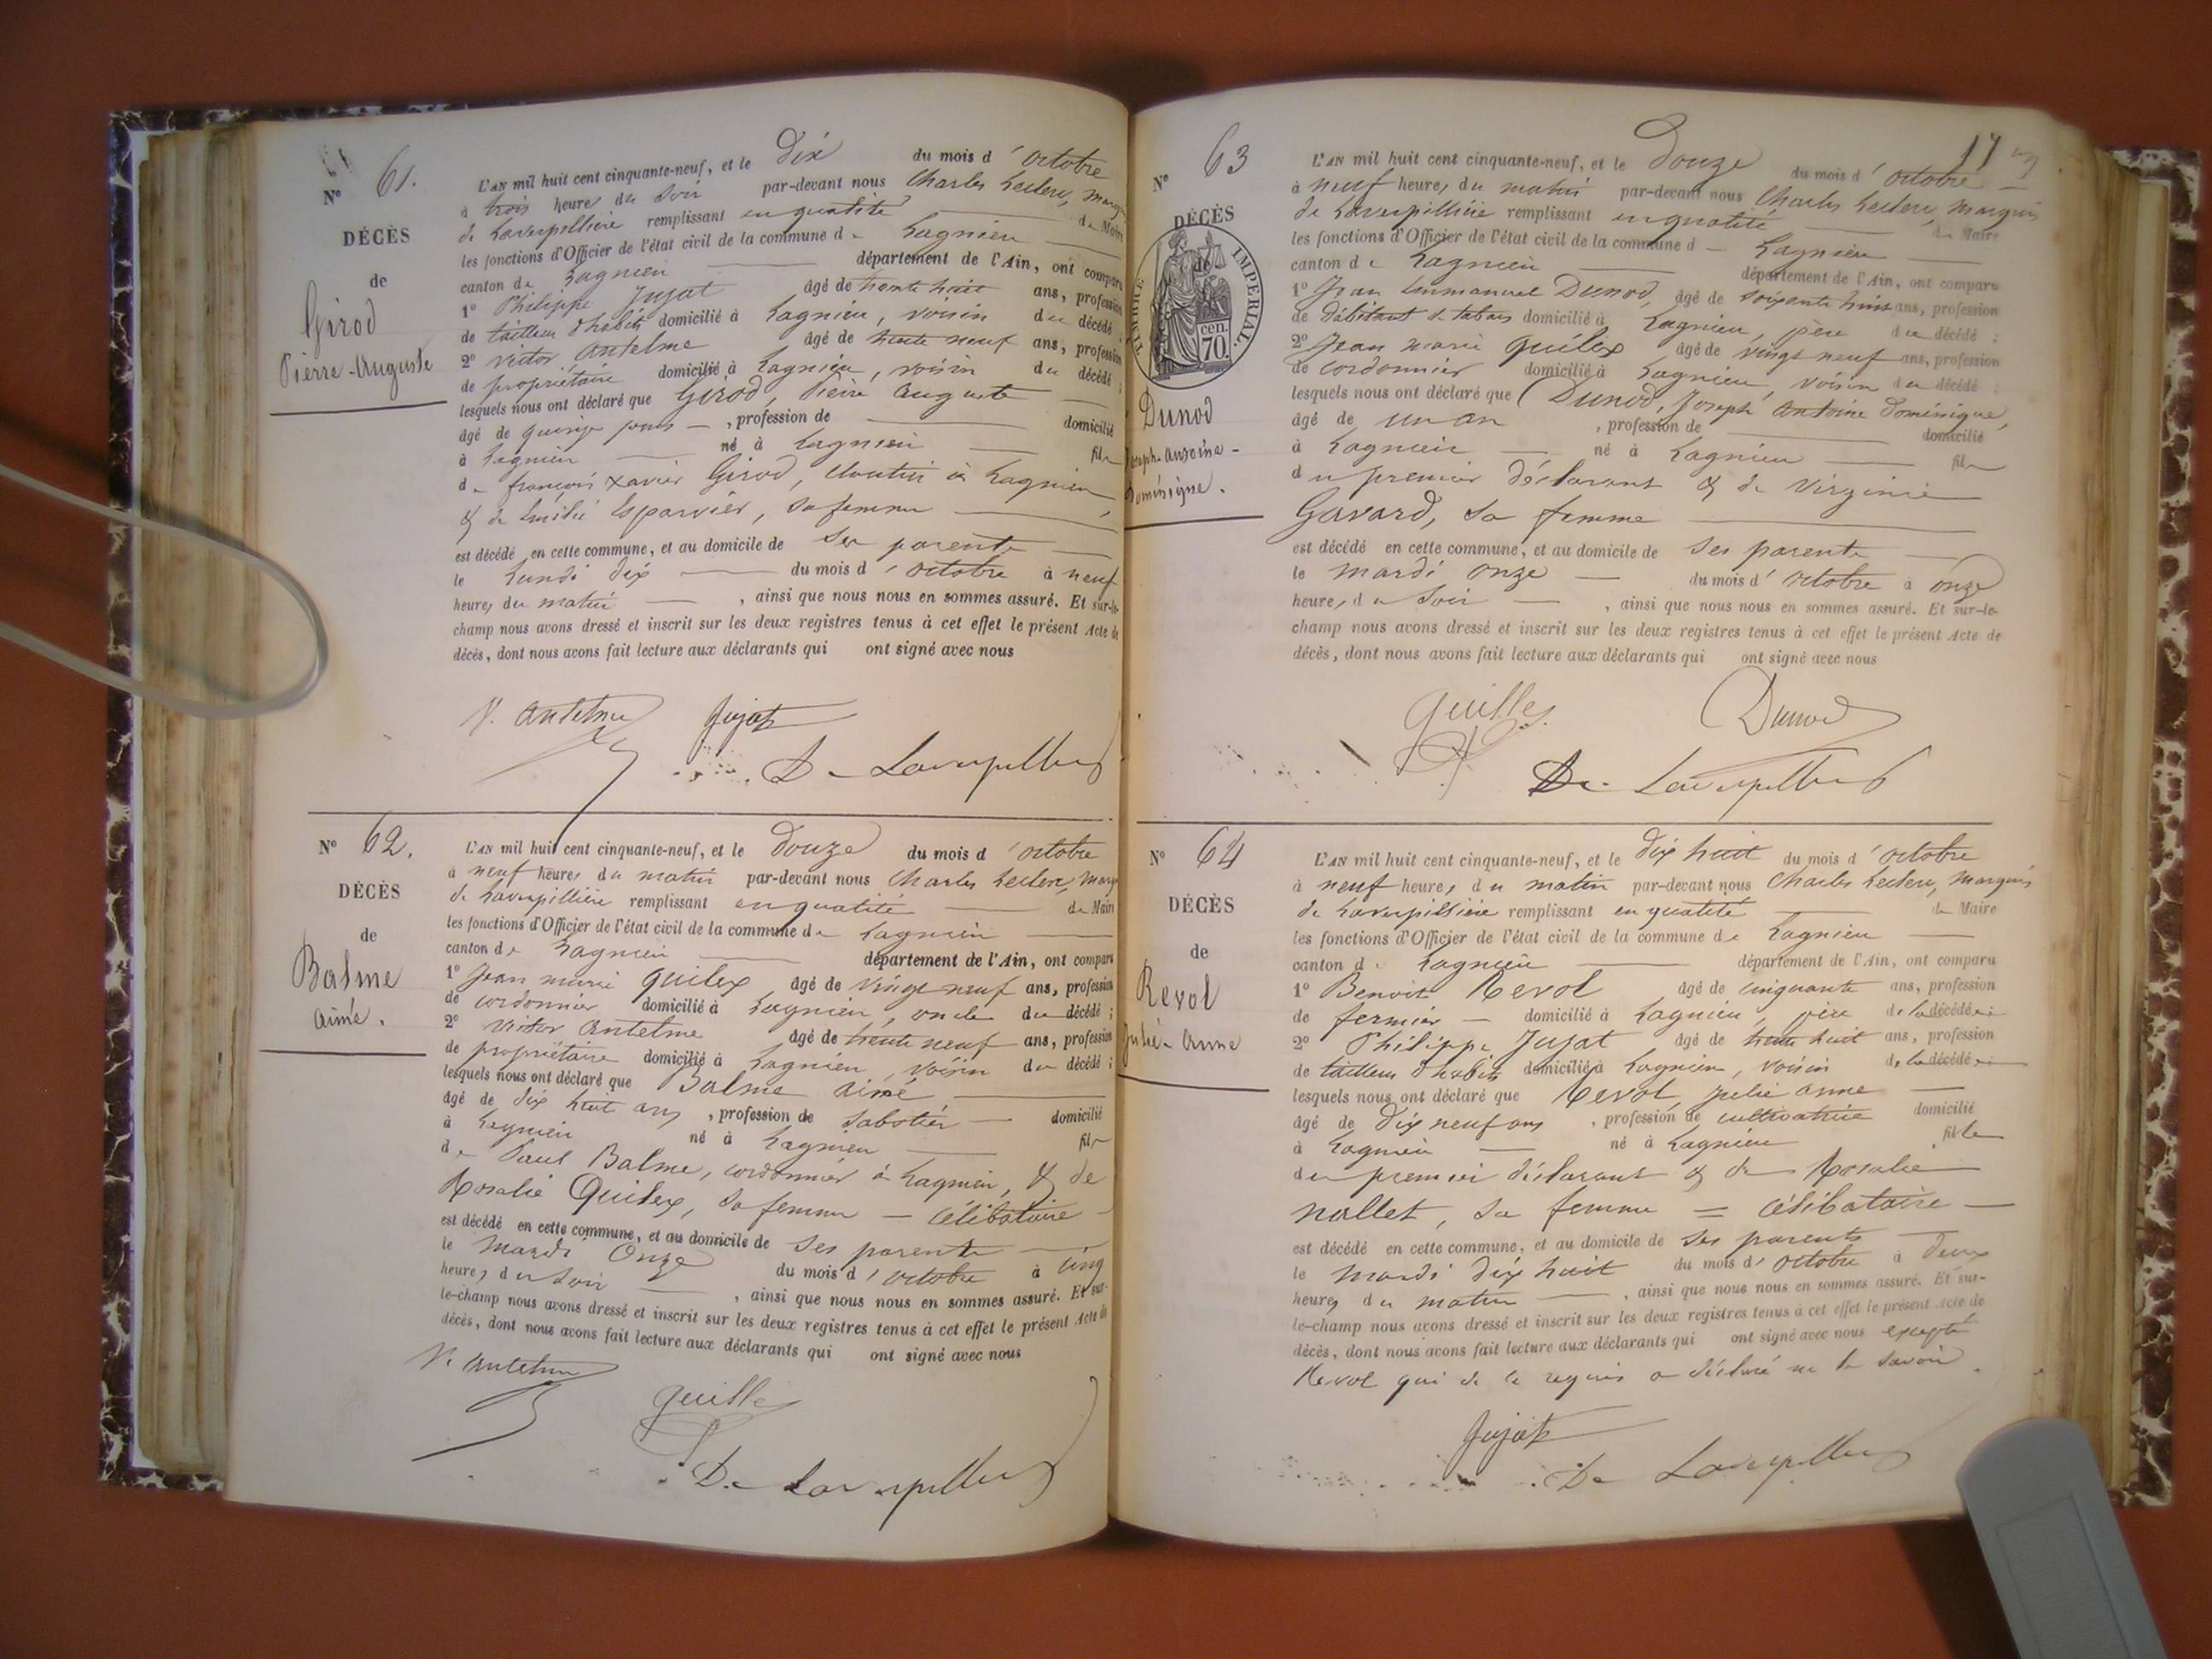 N° 61.
DÉCÈS
de
Girod
Pierre-Auguste
L'AN mil huit cent cinquante-neuf, et le Dix du mois d'octobre
à trois heures du soir par-devant nous Charles Leclerc, marquis
de Laverpillière remplissant en qualité de Maire
les fonctions d'Officier de l'état civil de la commune de Lagnieu
canton de Lagnieu département de l'Ain, ont comparu
1° Philippe Jujat âgé de trente huit ans, profession
de tailleur d'habits domicilié à Lagnieu, voisin du décédé
2° Victor Antelme âgé de trente neuf ans, profession
de propriétaire domicilié à Lagnieu, voisin du décédé ;
lesquels nous ont déclaré que Girod, Pierre Auguste
âgé de quinze jours , profession de domicilié
à Lagnieu né à Lagnieu fils
de françois Xavier Girod, cloutier à Lagnieu,
& de Emilie Esparvier, sa femme
est décédé en cette commune, et au domicile de ses parents
le Lundi dix du mois d'octobre à neuf
heures du matin , ainsi que nous nous en sommes assuré. Et sur-le-
champ nous avons dressé et inscrit sur les deux registres tenus à cet effet le présent Acte de
décès, dont nous avons fait lecture aux déclarants qui ont signé avec nous
V. Antelme Jujat
De Laverpillière
N° 62.
DÉCÈS
de
Balme
aimé.
L'AN mil huit cent cinquante-neuf, et le Douze du mois d'octobre
à neuf heures du matin par-devant nous Charles Leclerc, marq
de Laverpillière remplissant en qualité de Maire
les fonctions d'Officier de l'état civil de la commune de Lagnieu
canton de Lagnieu département de l'Ain, ont comparu
1° Jean marie Quilex âgé de vingt neuf ans, profession
de cordonnier domicilié à Lagnieu, oncle du décédé ;
2° Victor Antelme âgé de trente neuf ans, profession
de propriétaire domicilié à Lagnieu, voisin du décédé ;
lesquels nous ont déclaré que Balme aimé
âgé de dix huit ans , profession de sabotier domicilié
à Lagnieu né à Lagnieu fils
de Paul Balme, cordonnier à Lagnieu, & de
Rosalie Quilex, sa femme — célibataire
est décédé en cette commune, et au domicile de ses parents
le mardi Onze du mois d'octobre à cinq
heures du soir , ainsi que nous nous en sommes assuré. Et sur-
le-champ nous avons dressé et inscrit sur les deux registres tenus à cet effet le présent Acte de
décès, dont nous avons fait lecture aux déclarants qui ont signé avec nous
V. Antelme
Quilles
De Laverpillière
17
N° 63
DÉCÈS
de
TIMBRE IMPÉRIAL.
70 cen.
Dunod
Joseph-antoine-
Dominique.
L'AN mil huit cent cinquante-neuf, et le Douze du mois d'octobre
à neuf heures du matin par-devant nous Charles Leclerc, marquis
de Laverpillière remplissant en qualité de Maire
les fonctions d'Officier de l'état civil de la commune d Lagnieu
canton de Lagnieu département de l'Ain, ont comparu
1° Jean Emmanuel Dunod, âgé de soixante huit ans, profession
de débitant de tabacs domicilié à Lagnieu, père du décédé ;
2° Jean marie Quilex âgé de vingt neuf ans, profession
de cordonnier domicilié à Lagnieu, voisin du décédé ;
lesquels nous ont déclaré que Dunod, Joseph Antoine Dominique,
âgé de un an , profession de domicilié
à Lagnieu né à Lagnieu fils
du premier déclarant & de Virginie
Gavard, sa femme
est décédé en cette commune, et au domicile de ses parents
le mardi onze du mois d'octobre à onze
heures du soir , ainsi que nous nous en sommes assuré. Et sur-le-
champ nous avons dressé et inscrit sur les deux registres tenus à cet effet le présent Acte de
décès, dont nous avons fait lecture aux déclarants qui ont signé avec nous
Quilles Dunod
De Laverpillière
N° 64
DÉCÈS
de
Revol
Julie-Anne
L'AN mil huit cent cinquante-neuf, et le Dix huit du mois d'octobre
à neuf heures du matin par-devant nous Charles Leclerc, marquis
de Laverpillière remplissant en qualité de Maire
les fonctions d'Officier de l'état civil de la commune de Lagnieu
canton de Lagnieu département de l'Ain, ont comparu
1° Benoit Revol âgé de cinquante ans, profession
de fermier domicilié à Lagnieu, père de la décédée ;
2° Philippe Jujat âgé de trente huit ans, profession
de tailleur d'habits domicilié à Lagnieu, voisin de la décédée ;
lesquels nous ont déclaré que Revol, julie anne
âgé de Dix neuf ans , profession de cultivatrice domicilié
à Lagnieu né à Lagnieu fille
du premier déclarant & de Rosalie
nallet, sa femme = célibataire —
est décédé en cette commune, et au domicile de ses parents
le mardi dix huit du mois d'octobre à deux
heures du matin , ainsi que nous nous en sommes assuré. Et sur-
le-champ nous avons dressé et inscrit sur les deux registres tenus à cet effet le présent Acte de
décès, dont nous avons fait lecture aux déclarants qui ont signé avec nous excepté
Revol qui de ce requis a déclaré ne le savoir.
Jujat
De Laverpillière